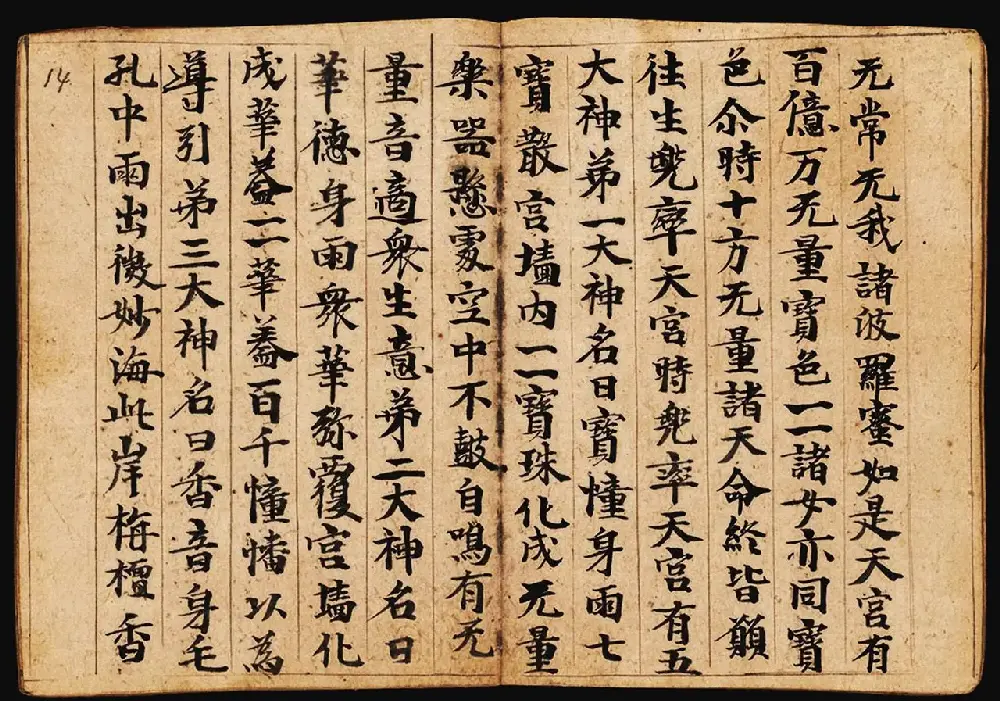 无常无我諸波羅蜜如是天宮有
百億万无量寶色一一諸女亦同寶
色尒時十方无量諸天命終皆願
往生兜率天宮時兜率天宮有五
大神苐一大神名曰寶幢身雨七
寶散宮墻內一一寶珠化成无量
樂器懸處空中不鼓自鳴有无
量音適衆生意苐二大神名曰
華德身雨衆華弥覆宮墻化
成華蓋一一華蓋百千幢幡以為
導引苐三大神名曰香音身毛
孔中雨出微妙海此岸栴檀香
14